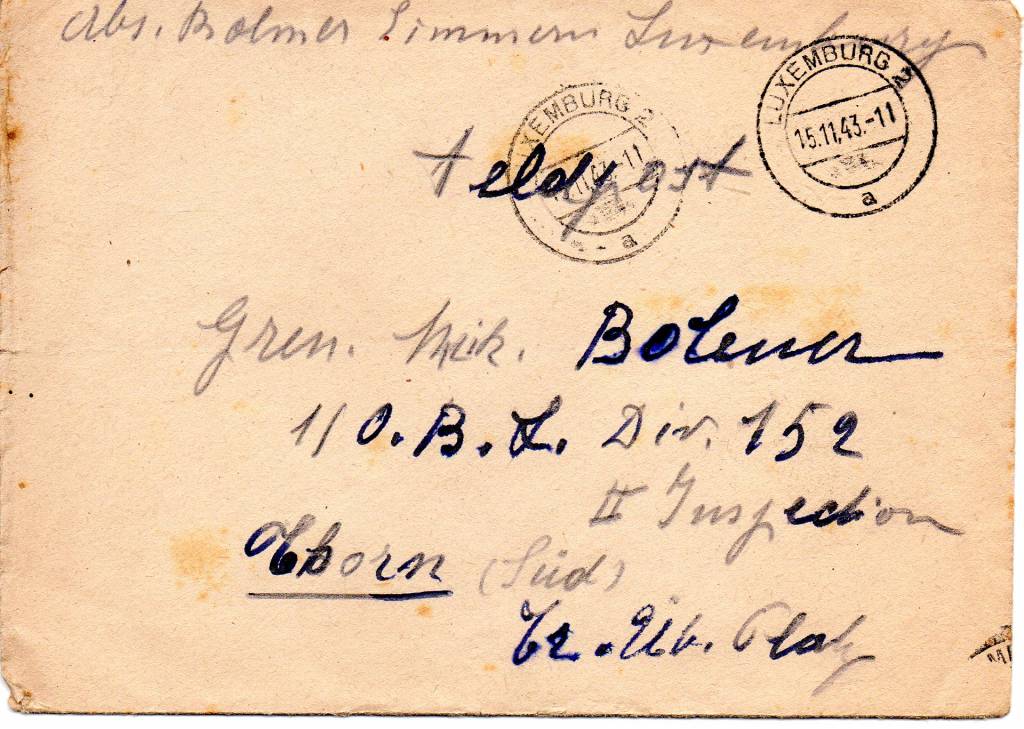 Abs. Bolmer Simmern Luxemburg
LUXEMBURG 2
15.11.43.-11
a
LUXEMBURG 2
a
Feldpost
Gren. Nik. Bolmer
1/ O.B.L. Div. 152
II Inspection
Thorn (Süd)
Tr. Üb. Platz